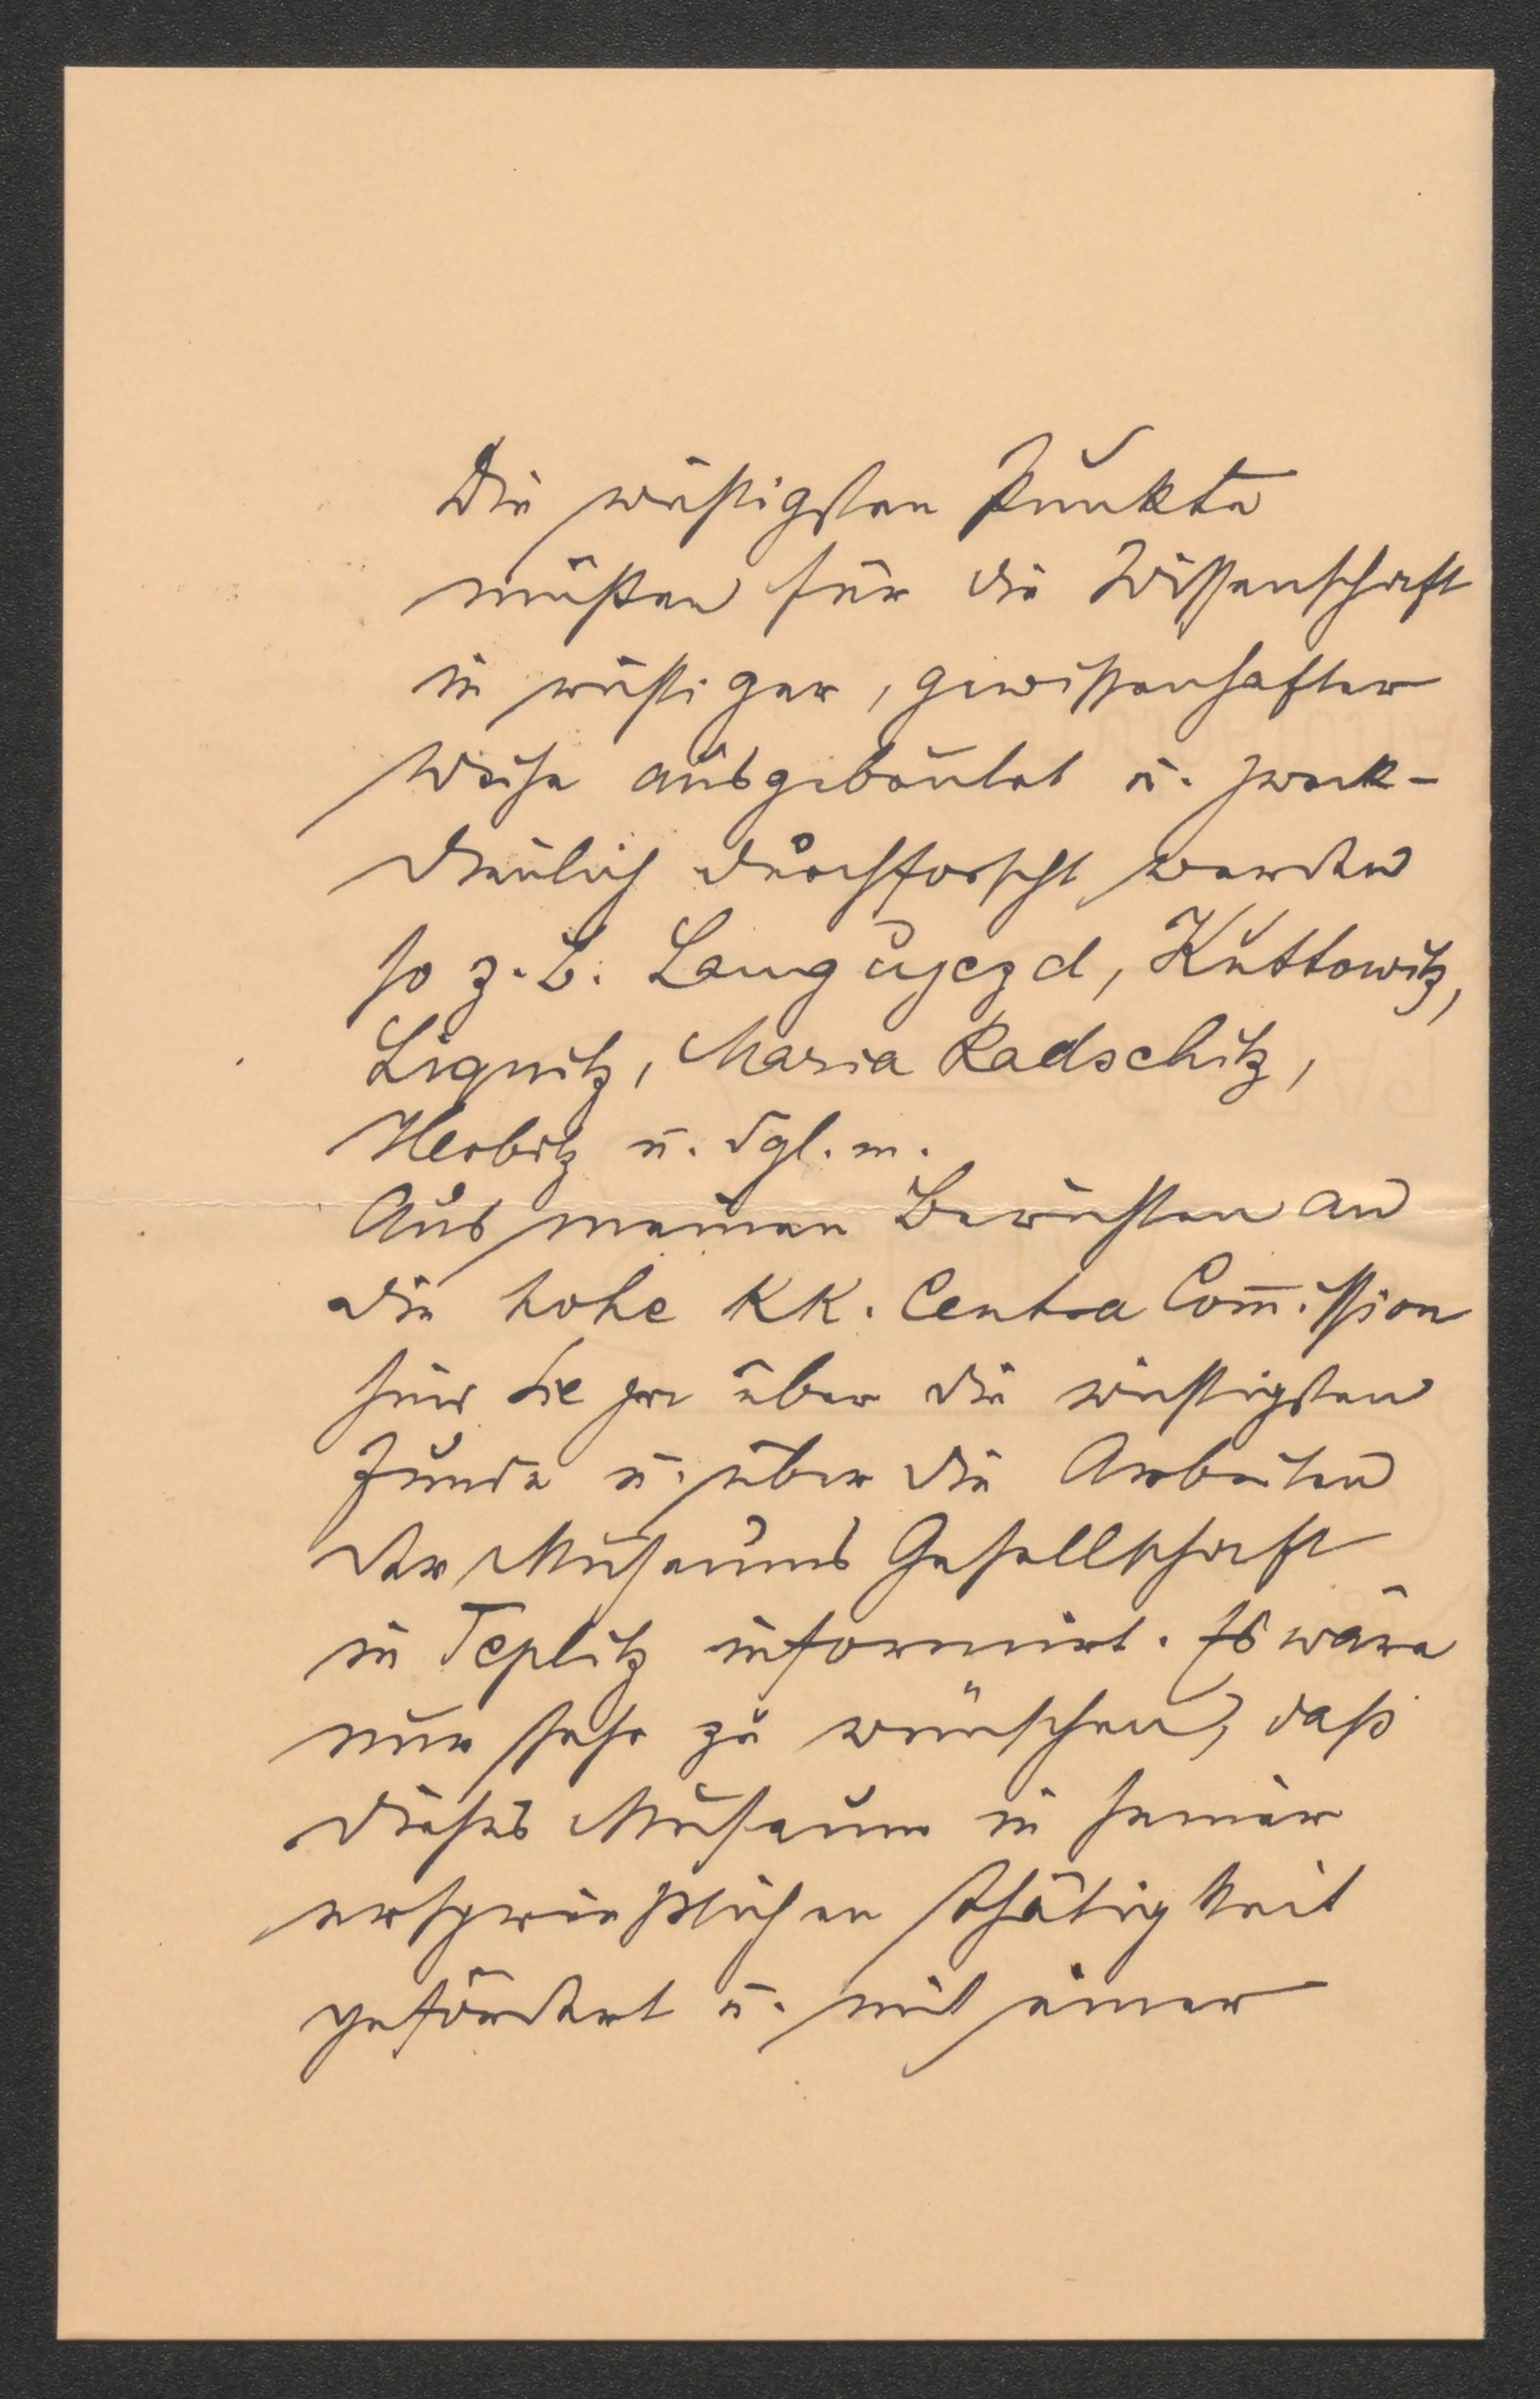 Die wichtigsten Punkte
müßten für die Wissenschaft
in richtiger, gewissenhafter
Weise ausgebeutet u. zweck-
dienlich durchforscht werden
so z. B. Langujezd, Kuttowitz,
Liquitz, Maria Radschitz,
Herbitz u. dgl. m.
Aus meinen Berichten an
die hohe KK. Centra Com̅ission
sind Sie ja über die wichtigsten
Funde u. über die Arbeiten
der Museums Gesellschaft
in Teplitz informirt. Es wäre
nur sehr zu wünschen, daß
dieses Museum in seiner
ersprießlichen Thätigkeit
gefördert u. mit einer